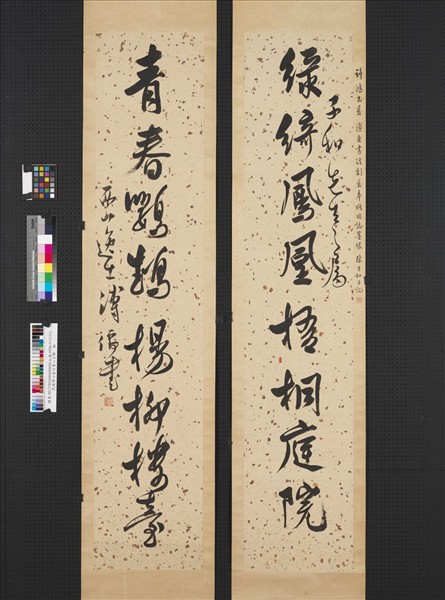 綠綺鳳凰梧桐庭院
子和先生之屬
青春鸚鵡楊柳樓臺
西山逸士溥儒書